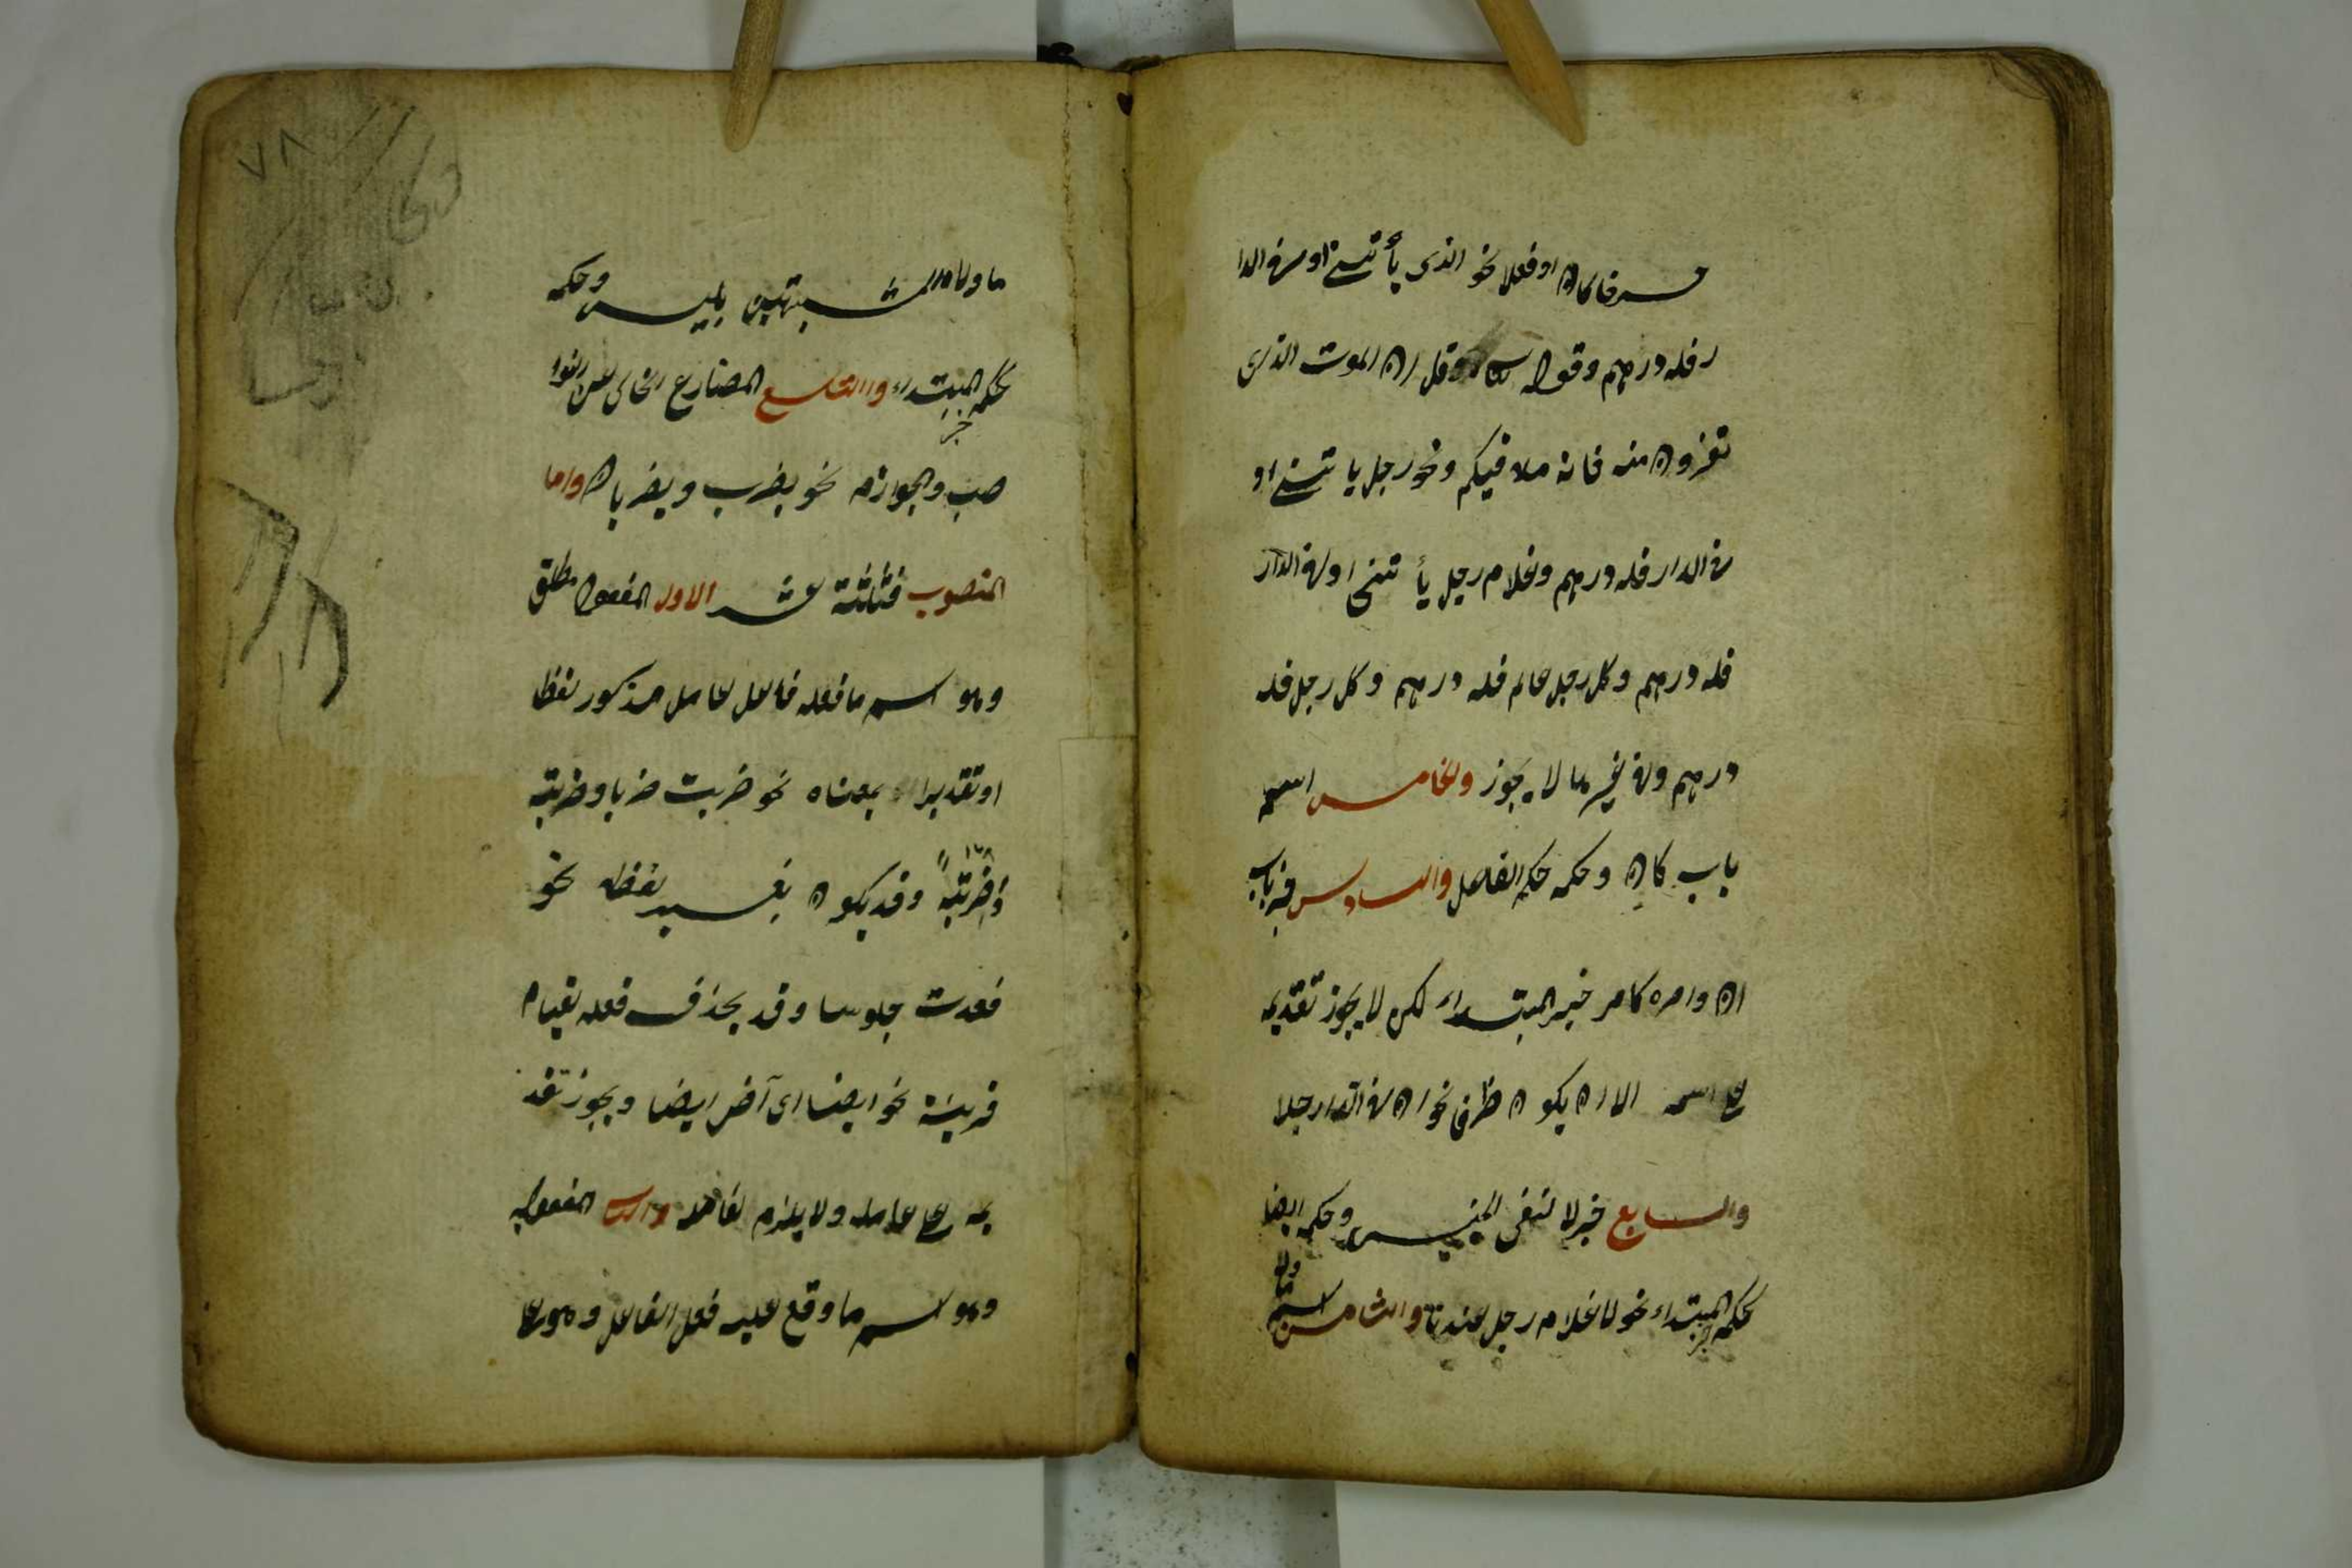 حرفا كان او فعلا نحو الذى يأتينى او فى الدا
ر فله درهم وقوله تعالى قل ان الموت الذى
تفرون منه فانه ملاقيكم ونحو رجل ياتينى او
فى الدار فله درهم وغلام رجل يأتينى او فى الدار
فله درهم وكل رجل عالم فله درهم وكل رجل فله
درهم وفى غيرها لا يجوز والخامس اسم
باب كان وحكمه حكم الفاعل والسادس خبر باب
ان وامره كامر خبر المبتداء لكن لا يجوز تقديمه
على اسمه الا ان يكون ظرفا نحو ان فى الدار رجلا
والسابع خبر لا لنفى الجنس وحكمه ايضا
كحكم خبر المبتداء نحو لا غلام رجل عندنا والثامن اسم
ما ولا المشبهتين بليس وحكمه
كحكم المبتداء والتاسع المضارع الخالى عن النوا
خبر
صب والجوازم نحو يضرب ويضربان واما
المنصوب فثلثة عشر الاول المفعول مطلق
وهو اسم ما فعله فاعل عامل مذكور لفظا
او تقديرا بمعناه نحو ضربت ضربا وضربة
وضربة وقد يكون بغير لفظه نحو
قعدت جلوسا وقد يحذف فعله لقيام
قرينة نحو ايضا اى آض ايضا ويجوز تقد
يمه على عامله ولا يلزم لفاعله والثانى المفعول به
وهو اسم ما وقع عليه فعل الفاعل وهو على
٧٨